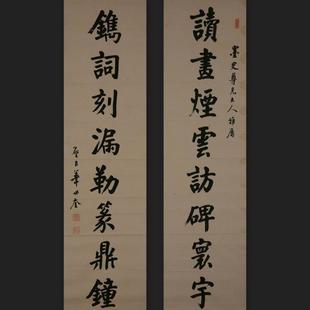 讀畫煙雲訪碑寰宇
墨史尊兄大人雅屬
鐫詞刻漏勒篆鼎鐘
華世奎